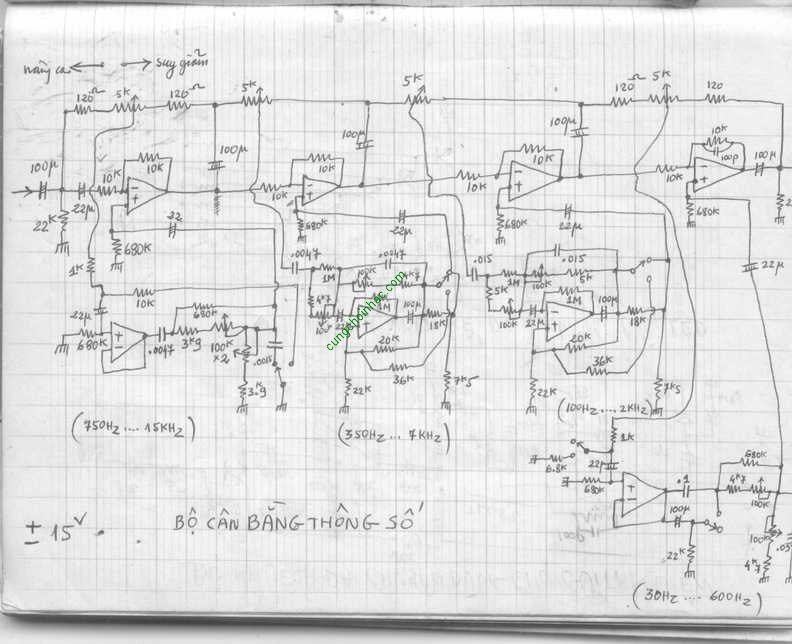 nâng cao suy giảm
120Ω 5K 120Ω 5K 5K 120Ω 5K 120
100µ 100µ 100µ 100µ
10K 10K 10K 10K 100p 100µ
22µ 10K 10K 10K 10K
22K 680K 22 680K 22µ 680K 22µ 680K 22µ
1K 10K
.0047 1M .0047 100K 4K7
.015 1M 100K .015 5K
22µ 680K .0047 3K9 680K 100K ×2 .0015 3.9K
4K7 100K 22µ 1M 100µ 18K
5K 100K 22µ 1M 100µ 18K
20K 36K 22K 7K5
20K 36K 22K 7K5
(750Hz .... 15KHz)
(350Hz ... 7KHz)
(100Hz ... 2KHz)
1K 6.8K 22µ 680K .1 100µ 22K 680K 4K7 100K
100K 4K7 .05
± 15V
BỘ CÂN BẰNG THÔNG SỐ
(30Hz .... 600Hz)
cungchoinhac.com